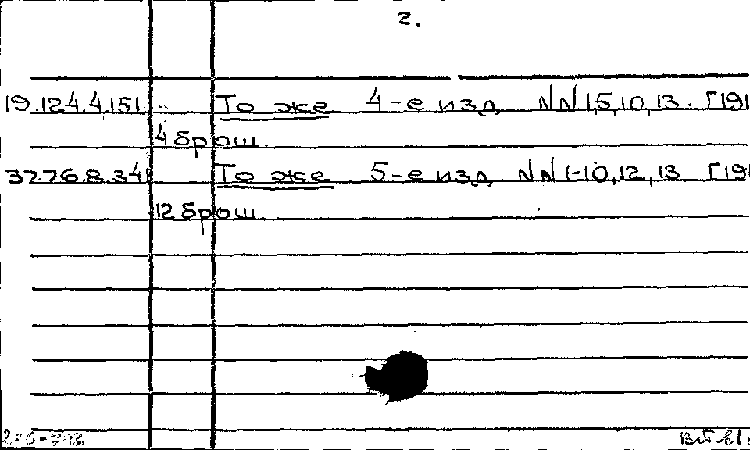 2.
19.124.4.151 То же 4-е изд. NN 1,5,10,13. [191
4 брош.
37.76.8.341 То же 5-е изд. NN 1-10,12,13 [191
12 брош.